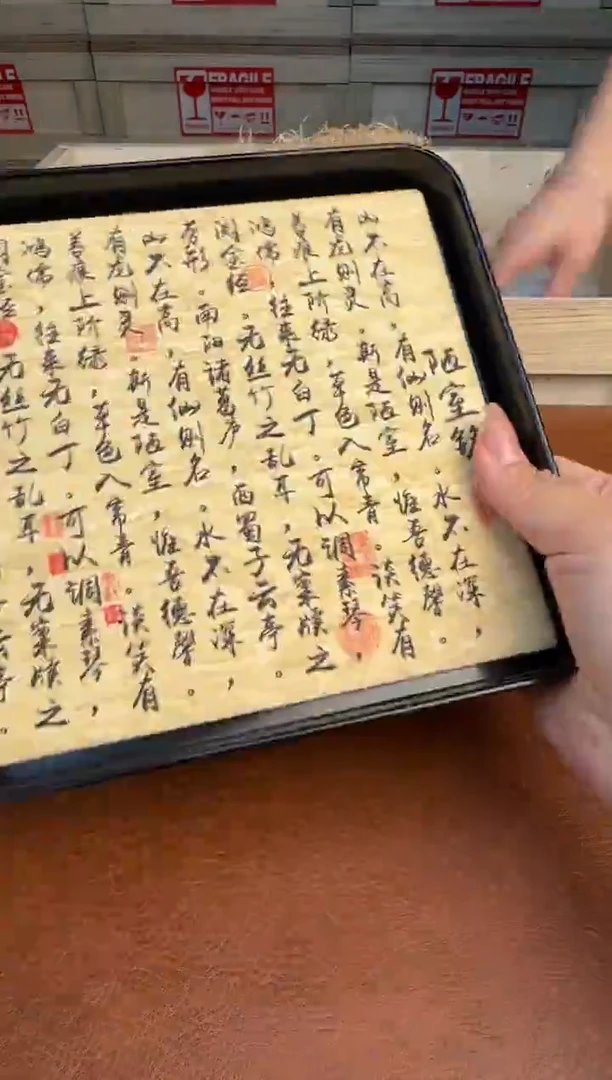 FRAGILE
FRAGILE
陋室铭
山不在高，有仙则名。水不在深，
有龙则灵。斯是陋室，惟吾德馨。
苔痕上阶绿，草色入帘青。谈笑有
鸿儒，往来无白丁。可以调素琴，
阅金经。无丝竹之乱耳，无案牍之
劳形。南阳诸葛庐，西蜀子云亭。
山不在高，有仙则名。水不在深，
有龙则灵。斯是陋室，惟吾德馨。
苔痕上阶绿，草色入帘青。谈笑有
鸿儒，往来无白丁。可以调素琴，
阅金经。无丝竹之乱耳，无案牍之
云亭。